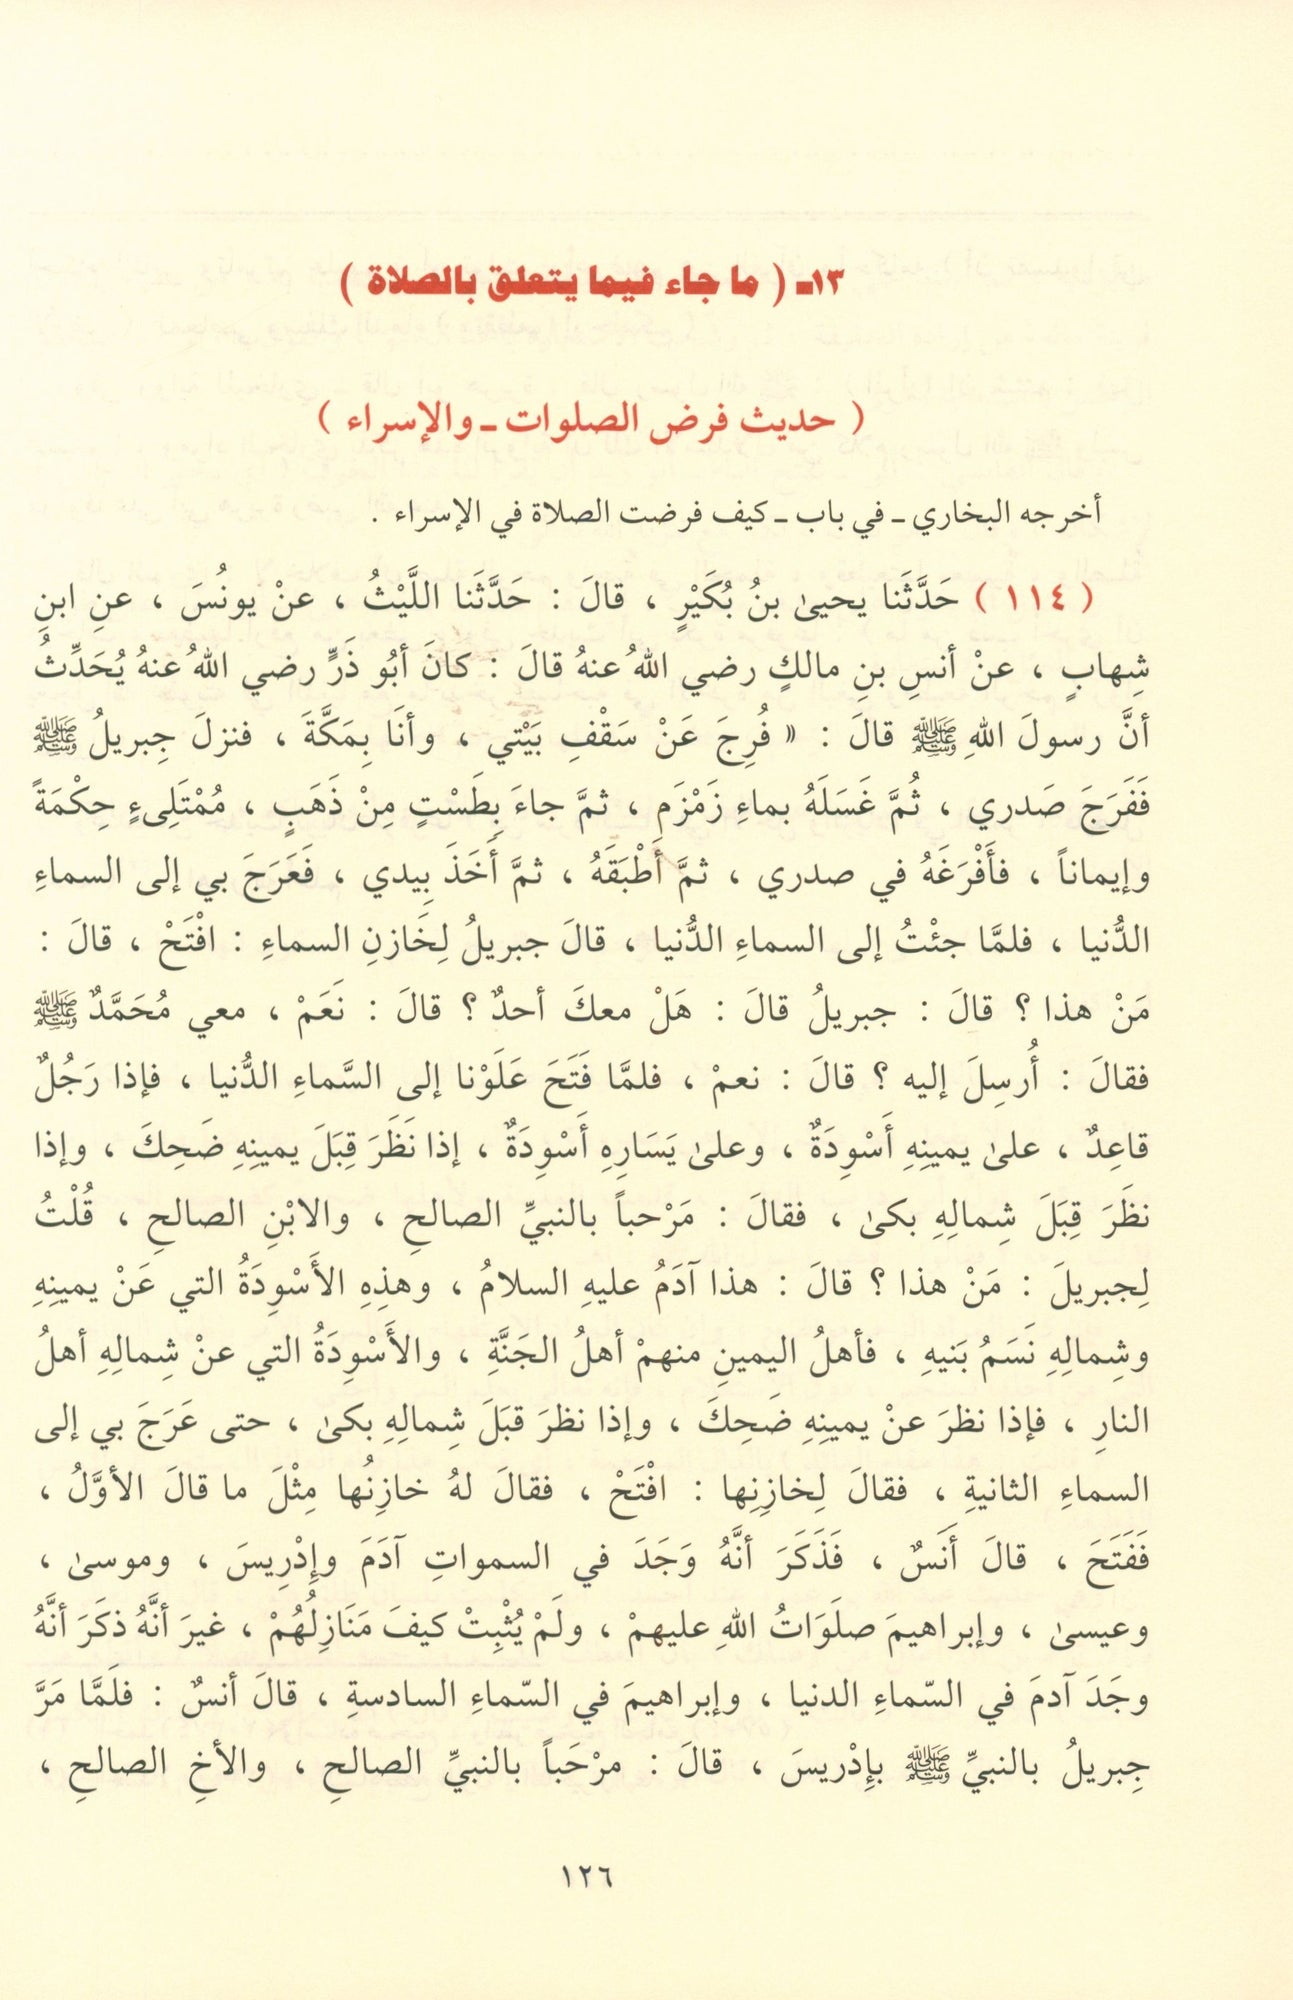 ١٣ـ ( ما جاء فيما يتعلق بالصلاة )
( حديث فرض الصلوات ـ والإسراء )
أخرجه البخاري ـ في باب ـ كيف فرضت الصلاة في الإسراء .
( ١١٤ ) حَدَّثَنا يحيىٰ بنُ بُكَيْرٍ ، قالَ : حَدَّثَنا اللَّيْثُ ، عنْ يونُسَ ، عنِ ابنِ
شِهابٍ ، عنْ أنسِ بنِ مالكٍ رضي اللهُ عنهُ قالَ : كانَ أبُو ذَرٍّ رضي اللهُ عنهُ يُحَدِّثُ
أنَّ رسولَ اللهِ ﷺ قالَ : « فُرِجَ عَنْ سَقْفِ بَيْتي ، وأنَا بِمَكَّةَ ، فنزلَ جِبريلُ ﷺ
فَفَرَجَ صَدري ، ثُمَّ غَسَلَهُ بماءِ زَمْزَمَ ، ثمَّ جاءَ بِطَسْتٍ مِنْ ذَهَبٍ ، مُمْتَلِىءٍ حِكْمَةً
وإيماناً ، فأَفْرَغَهُ في صدري ، ثمَّ أَطْبَقَهُ ، ثمَّ أَخَذَ بِيدي ، فَعَرَجَ بي إلى السماءِ
الدُّنيا ، فلمَّا جئْتُ إلى السماءِ الدُّنيا ، قالَ جبريلُ لِخَازنِ السماءِ : افْتَحْ ، قالَ :
مَنْ هذا ؟ قالَ : جبريلُ قالَ : هَلْ معكَ أحدٌ ؟ قالَ : نَعَمْ ، معي مُحَمَّدٌ ﷺ
فقالَ : أُرسِلَ إليه ؟ قالَ : نعمْ ، فلمَّا فَتَحَ عَلَوْنا إلى السَّماءِ الدُّنيا ، فإذا رَجُلٌ
قاعِدٌ ، علىٰ يمينِهِ أَسْوِدَةٌ ، وعلىٰ يَسَارِهِ أَسْوِدَةٌ ، إذا نَظَرَ قِبَلَ يمينِهِ ضَحِكَ ، وإذا
نظَرَ قِبَلَ شِمالِهِ بكىٰ ، فقالَ : مَرْحباً بالنبيِّ الصالحِ ، والابْنِ الصالحِ ، قُلْتُ
لِجبريلَ : مَنْ هذا ؟ قالَ : هذا آدَمُ عليهِ السلامُ ، وهذِهِ الأَسْوِدَةُ التي عَنْ يمينِهِ
وشِمالِهِ نَسَمُ بَنيهِ ، فأهلُ اليمينِ منهمْ أهلُ الجَنَّةِ ، والأَسْوِدَةُ التي عنْ شِمالِهِ أهلُ
النارِ ، فإذا نظرَ عنْ يمينِهِ ضَحِكَ ، وإذا نظرَ قبَلَ شِمالِهِ بكىٰ ، حتى عَرَجَ بي إلى
السماءِ الثانيةِ ، فقالَ لِخازِنِها : افْتَحْ ، فقالَ لهُ خازِنُها مِثْلَ ما قالَ الأوَّلُ ،
فَفَتَحَ ، قالَ أَنَسٌ ، فَذَكَرَ أنَّهُ وَجَدَ في السمواتِ آدَمَ وإِدْرِيسَ ، وموسىٰ ،
وعيسىٰ ، وإبراهيمَ صلَوَاتُ اللهِ عليهمْ ، ولَمْ يُثْبِتْ كيفَ مَنَازِلُهُمْ ، غيرَ أنَّهُ ذكَرَ أنَّهُ
وجَدَ آدمَ في السّماءِ الدنيا ، وإبراهيمَ في السّماءِ السادسةِ ، قالَ أنسٌ : فلَمَّا مَرَّ
جِبريلُ بالنبيِّ ﷺ بإِدْريسَ ، قالَ : مرْحَباً بالنبيِّ الصالحِ ، والأخِ الصالحِ ،
١٢٦